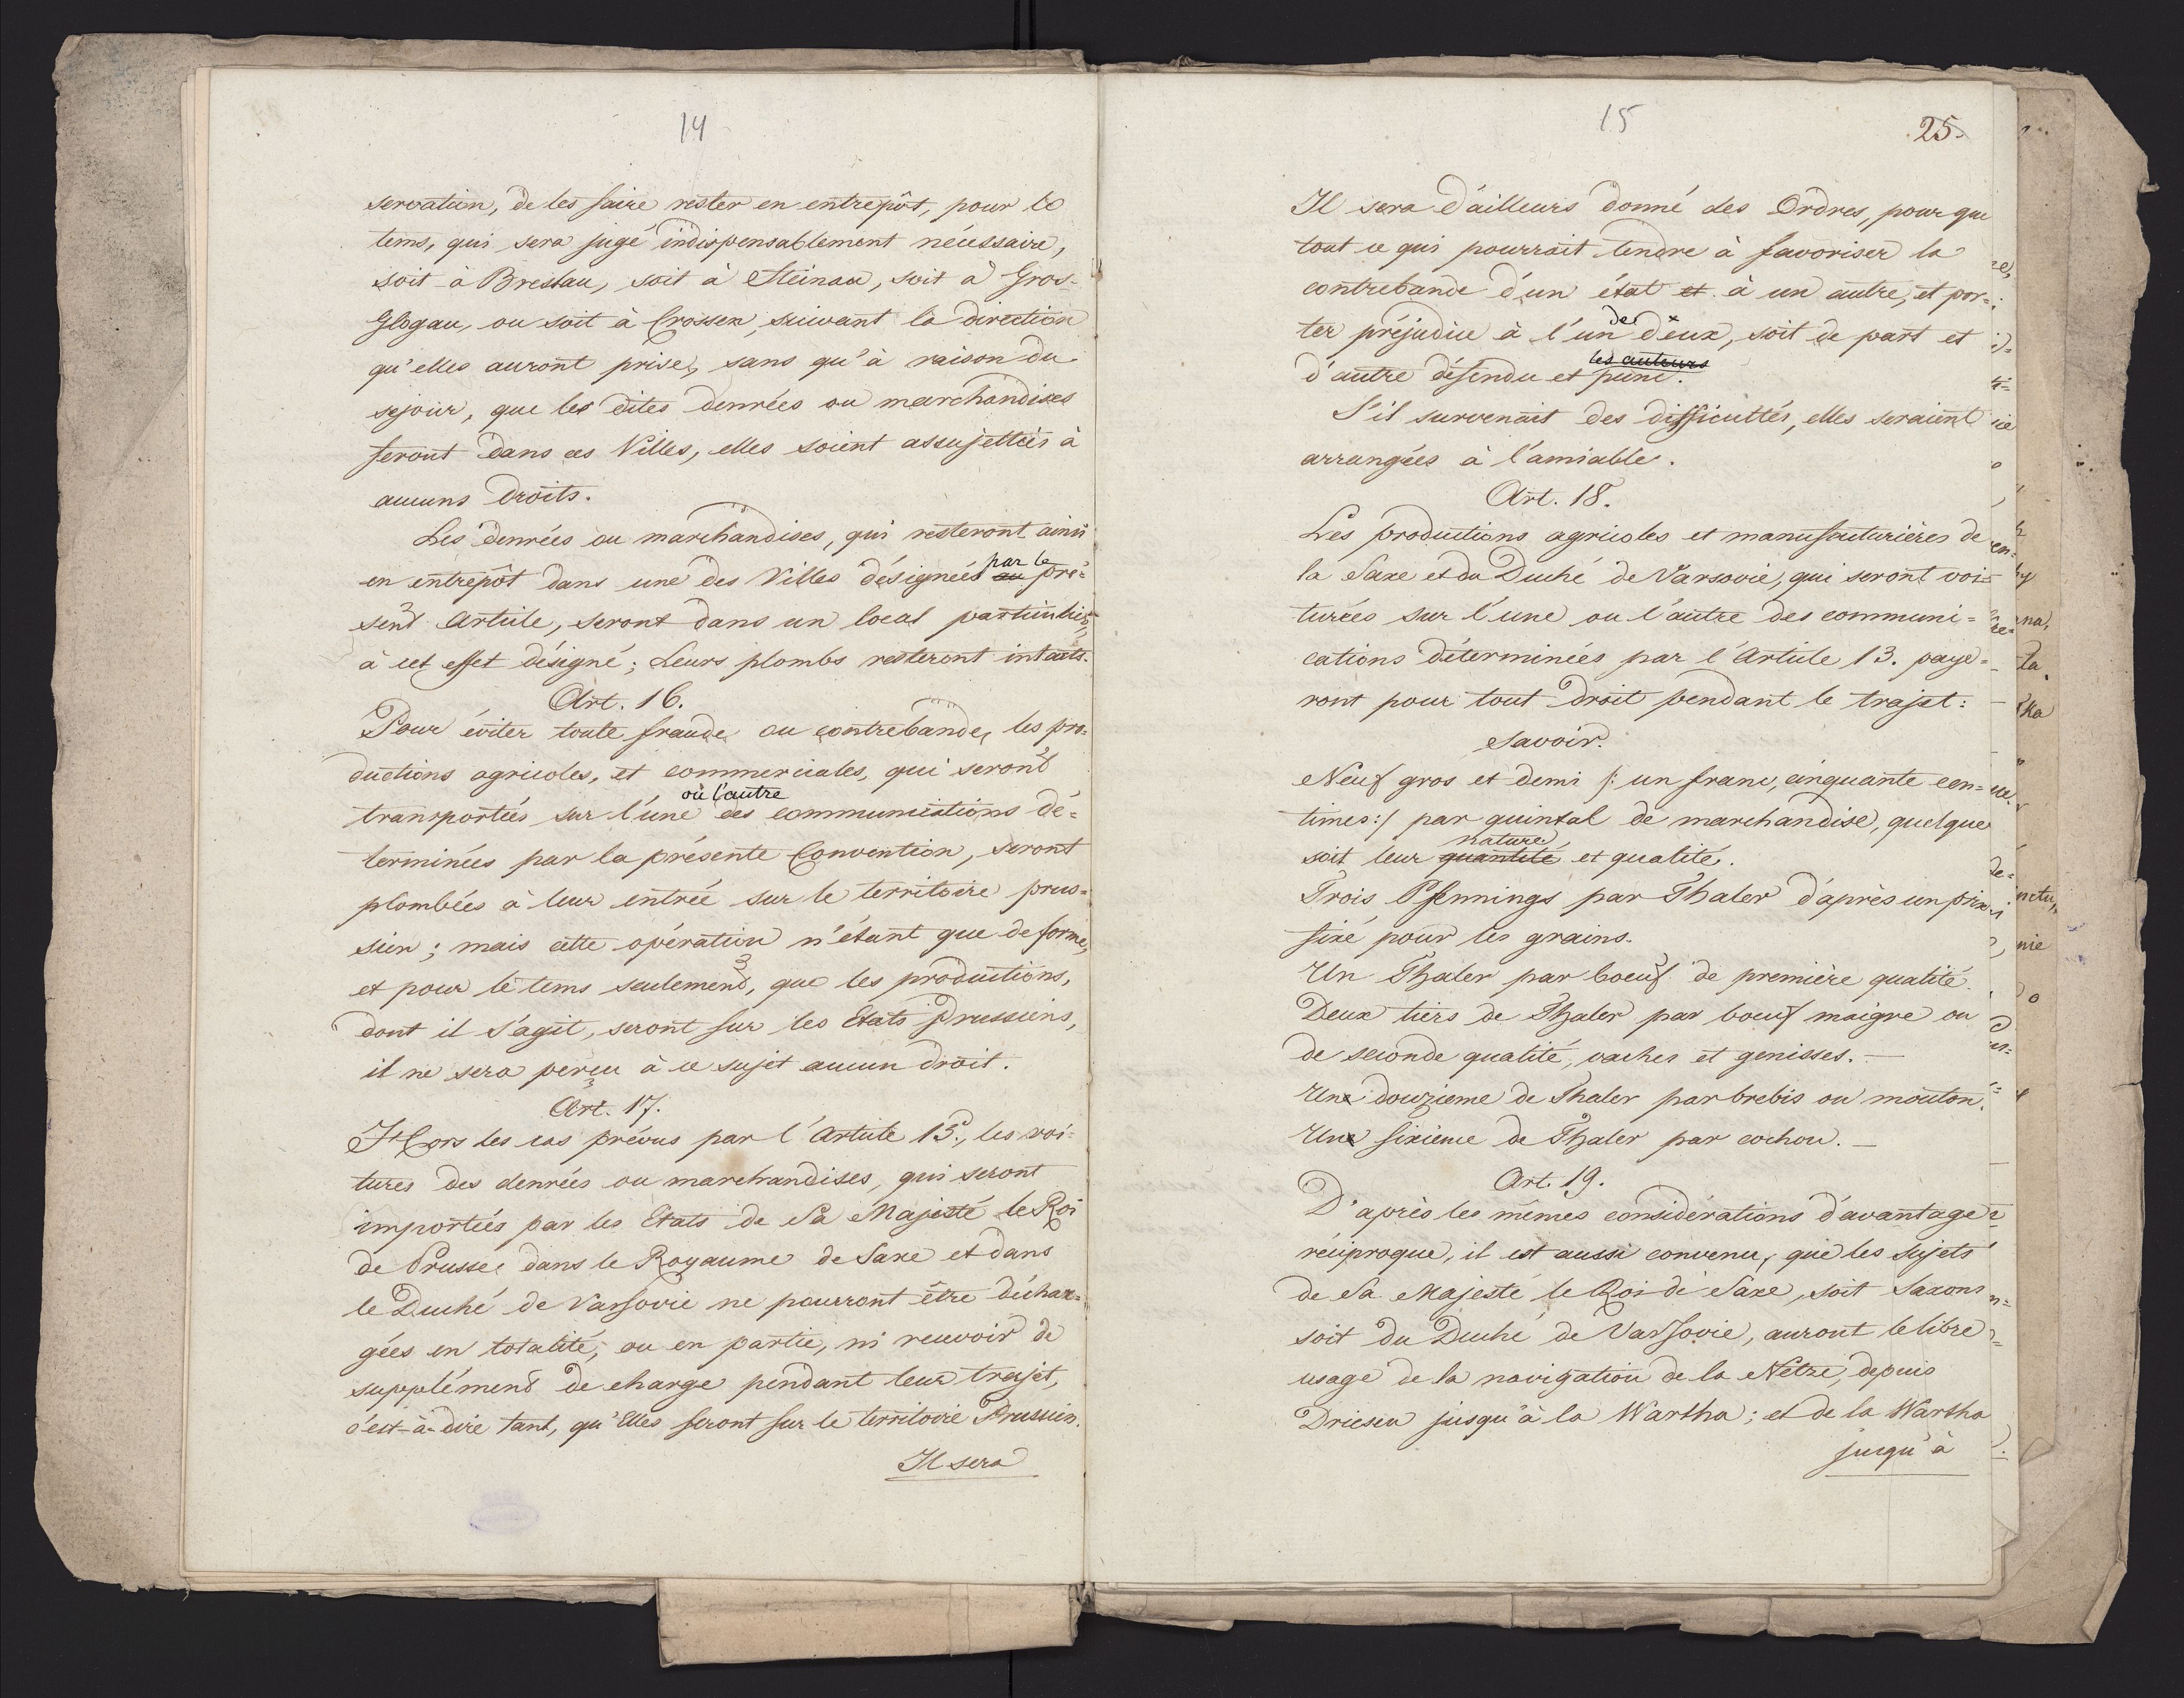 14
servation, de les faire rester en entrepôt, pour le
tems, qui sera jugé indispensablement nécessaire,
soit à Breslau, soit à Steinau, soit à Gros-
Glogau, ou soit à Crossen, suivant la direction
qu'elles auront prise, sans qu'à raison du
sejour, que les dites denrées ou marchandises
feront dans ces Villes, elles soient assujetties à
aucuns droits.
Les denrées ou marchandises, qui resteront ainsi
en entrepôt dans une des Villes désignées au par le pré-
sent Article, seront dans un local particulier,
à cet effet désigné; Leurs plombs resteront intacts.
Art. 16.
Pour éviter toute fraude ou contrebande, les pro-
ductions agricoles, et commerciales, qui seront
transportées sur l'une où l'autre des communications dé-
terminées par la présente Convention, seront
plombées à leur entrée sur le territoire prus-
sien; mais cette opération n'étant que de forme,
et pour le tems seulement, que les productions,
dont il s'agit, seront sur les Etats prussiens,
il ne sera perçu à ce sujet aucun droit.
Art. 17.
Hors les cas prévus par l'Article 15., les voi-
tures des denrées ou marchandises, qui seront
importées par les Etats de Sa Majesté le Roi
de Prusse dans le Royaume de Saxe et dans
le Duché de Varsovie ne pourront être déchar-
gées en totalité, ou en partie, ni recevoir de
supplément de charge pendant leur trajet,
c'est-à-dire tant, qu'Elles seront sur le territoire Prussien.
Il sera
15
25.
Il sera d'ailleurs donné des Ordres, pour que
tout ce qui pourrait tendre à favoriser la
contrebande d'un état et à un autre, et por-
ter préjudice à l'un des deux, soit de part et
d'autre défendu et les auteurs puni.
S'il survenait des difficultés, elles seraient
arrangées à l'amiable.
Art. 18.
Les productions agricoles et manufacturières de
la Saxe et du Duché de Varsovie, qui seront voi-
turées sur l'une ou l'autre des communi-
cations déterminées par l'Article 13. paye-
ront pour tout droit pendant le trajet:
Savoir.
Neuf gros et demi /: un franc, cinquante cen-
times :/ par quintal de marchandise, quelque
soit leur quantité nature et qualité.
Trois Pfennings par Thaler d'après un prix
fixé pour les grains.
Un Thaler par boeuf de première qualité.
Deux tiers de Thaler par boeuf maigre ou
de seconde qualité, vaches et genisses. —
Un douzieme de Thaler par brebis ou mouton.
Un sixieme de Thaler par cochon. —
Art. 19.
D'après les mêmes considérations d'avantage
réciproque, il est aussi convenu, que les Sujets
de Sa Majesté le Roi de Saxe, soit Saxons
soit du Duché de Varsovie, auront le libre
usage de la navigation de la Netze, depuis
Driesen jusqu'à la Wartha; et de la Wartha
jusqu'à